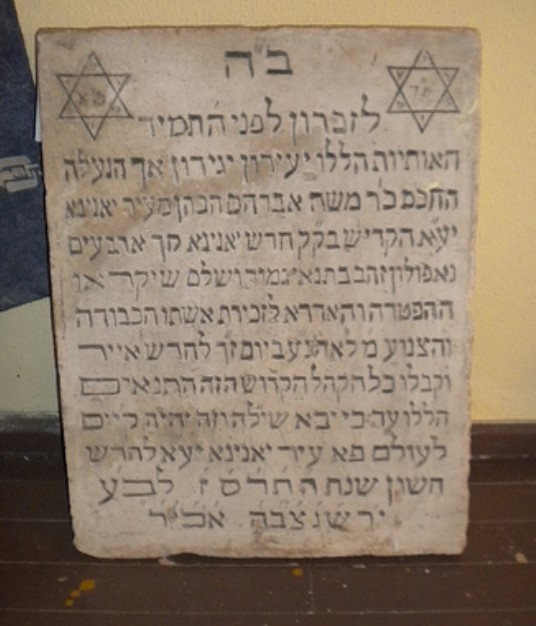 ב"ה
לזכרון לפני ה' תמיד
האותיות הללו יעירון יגידון אך הנעלה
החכם כ"ר משה אברהם הכהן מעיר יאנינא
יע"א הקדיש בקק חדש יאנינא סך ארבעים
נאפוליון זהב בתנאי גמור ושלם שיקראו
ההפטרה והאדרא לזכירת אשתו הכבודה
והצנועה ביום ז"ך לחדש אייר
וקבלו כל הקהל הקדוש הזה התנאים
הללו עד כי יבא שילה וזה יהיה קיים
לעולם פא עיר יאנינא יע"א לחדש
חשון שנת